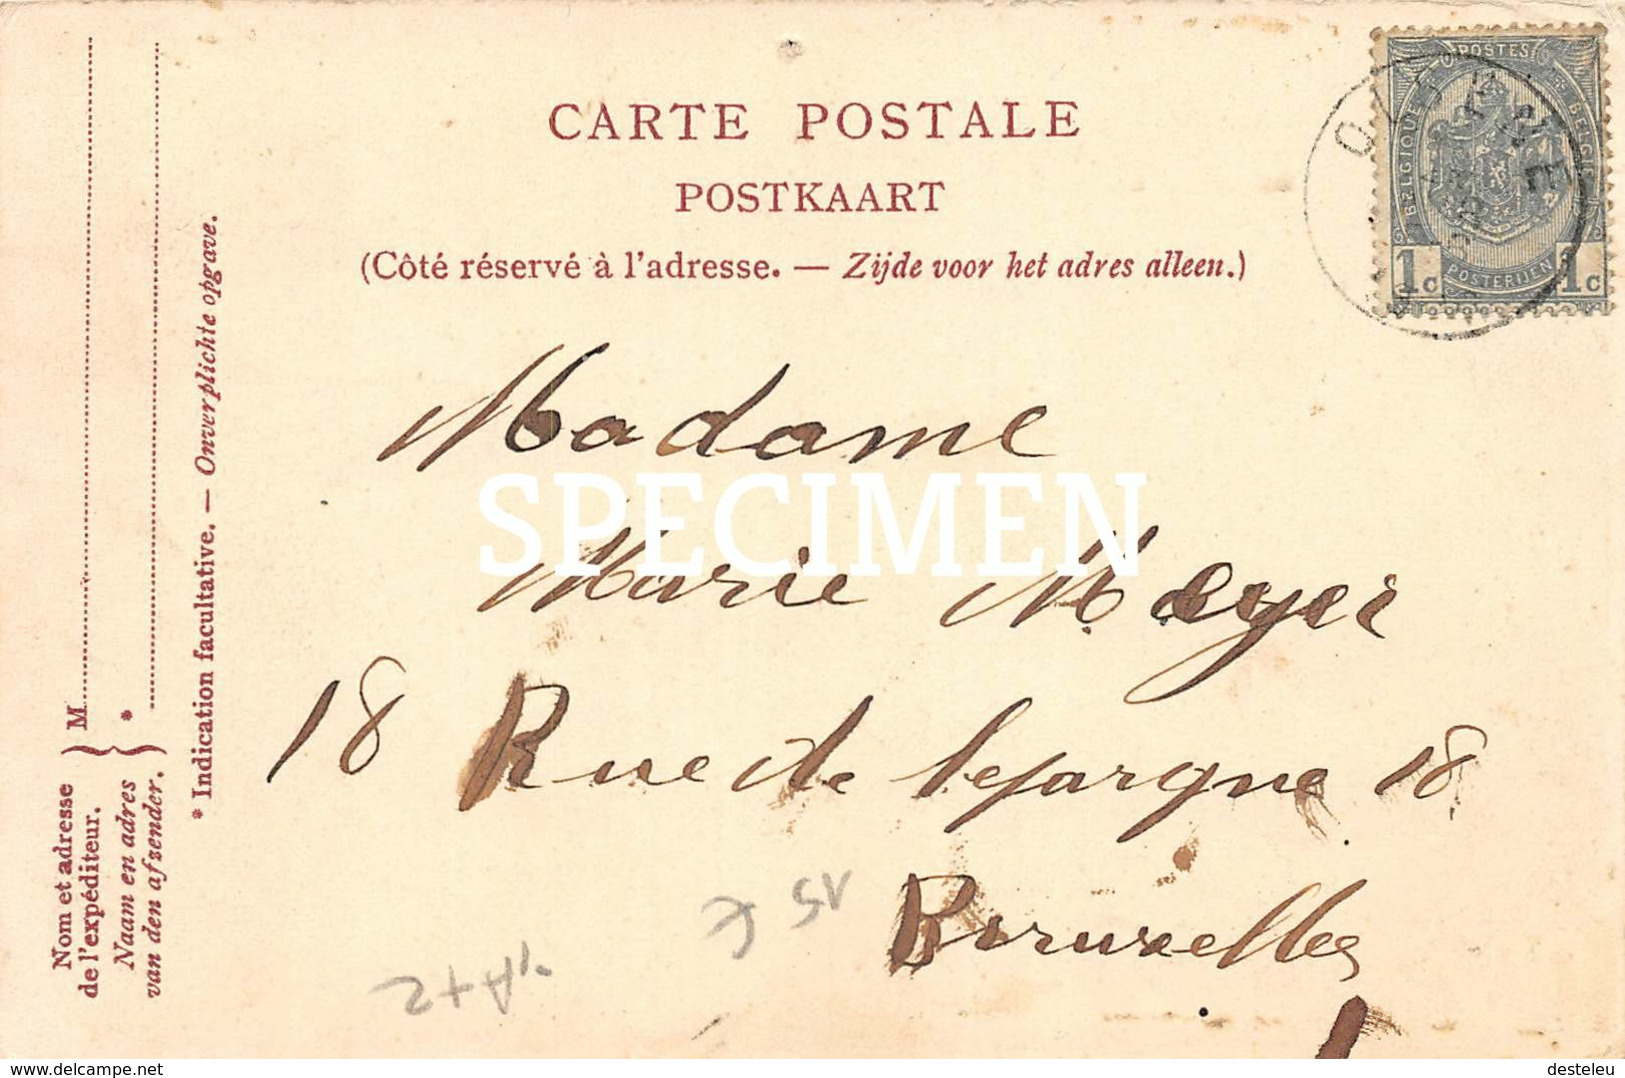 CARTE POSTALE
POSTKAART
(Côté réservé à l'adresse. — Zijde voor het adres alleen.)
POSTES
BELGIQUE
BELGIE
1c POSTERIJEN 1c
Madame
SPECIMEN
Marie Meyer
18 Rue de l'epargne 18
Bruxelles
15 €
Nom et adresse
de l'expéditeur.
Naam en adres
van den afzender.
M
*
* Indication facultative. — Onverplichte opgave.
delcampe.net
desteleu